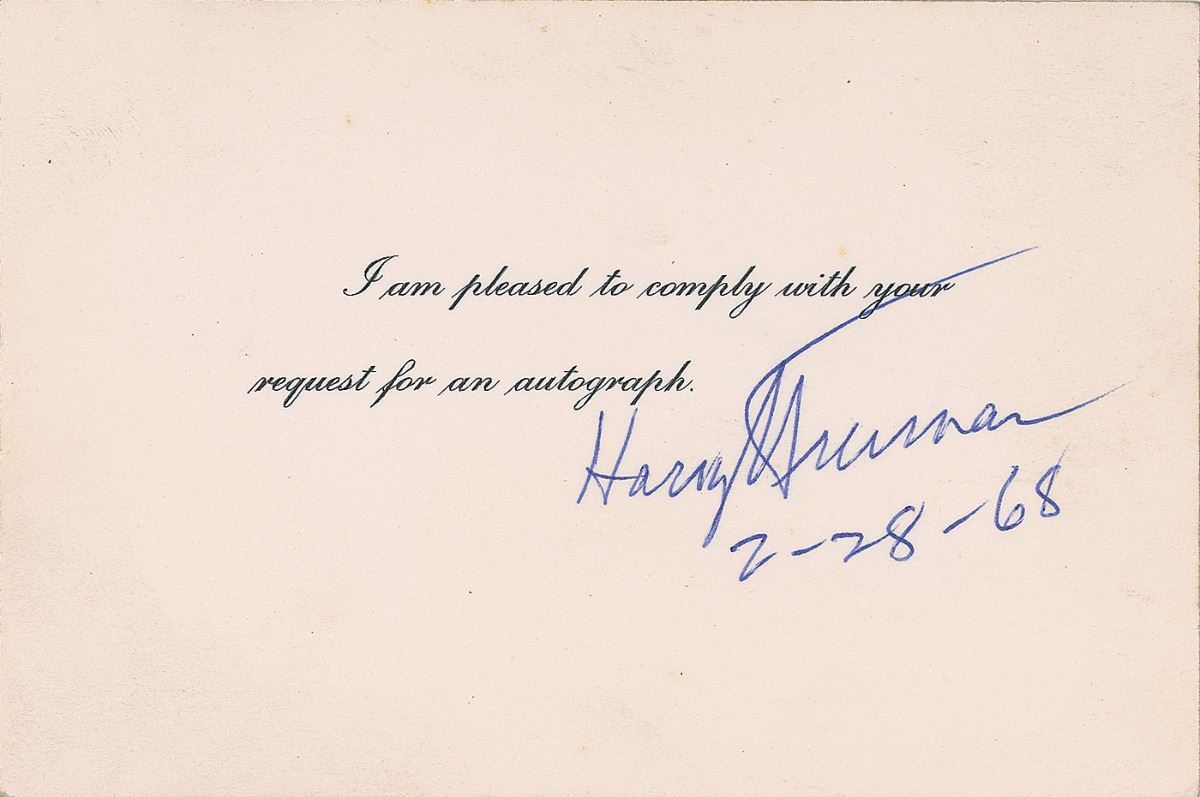 I am pleased to comply with your
request for an autograph.
Harry S Truman
2-28-68